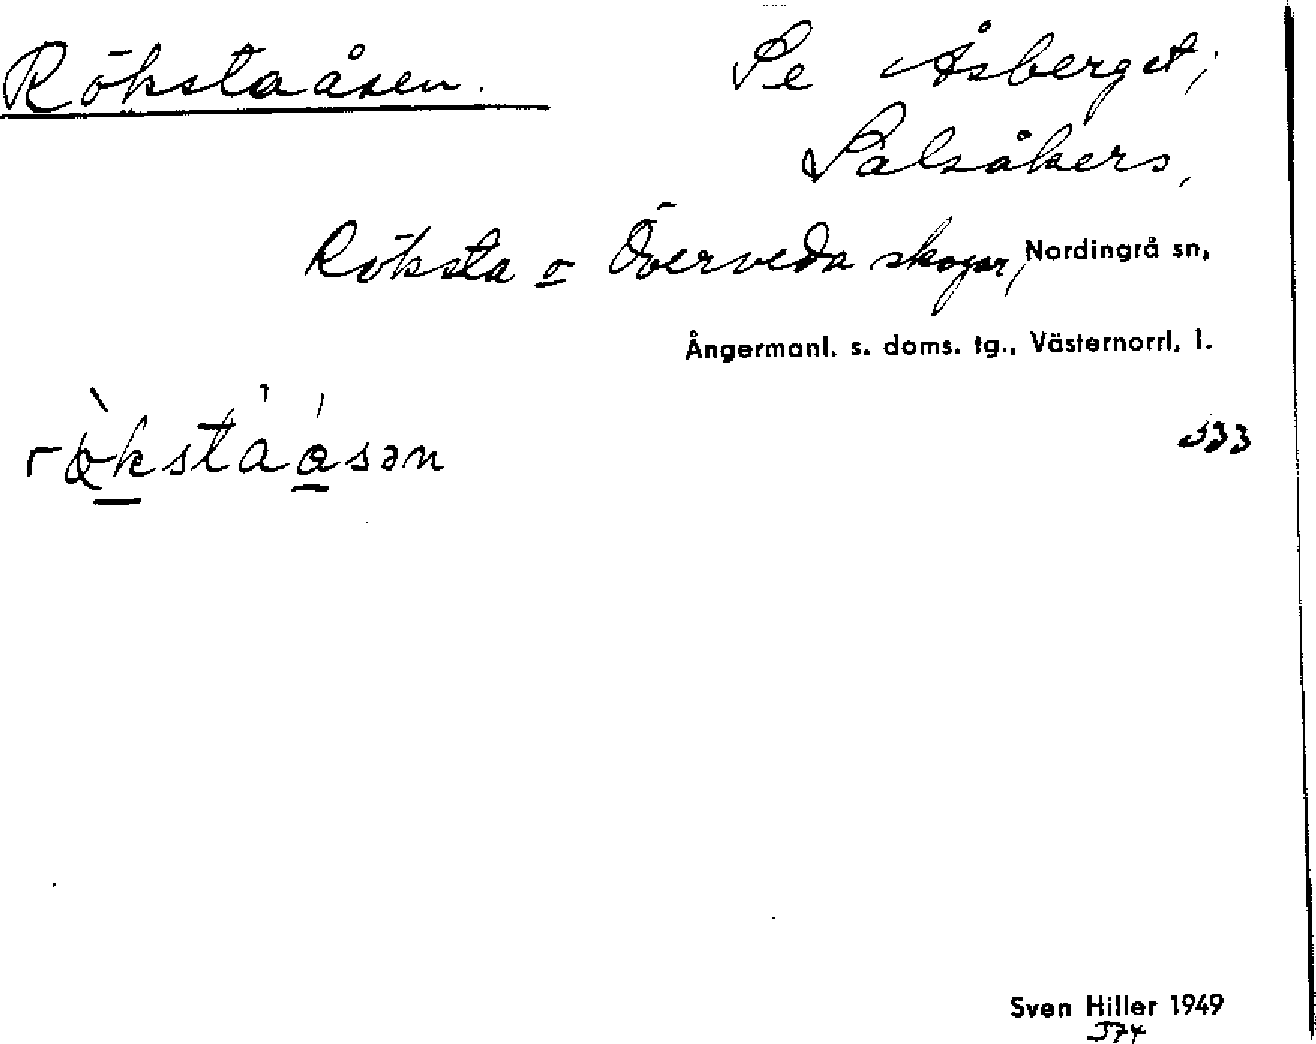 Rökstaåsen.
Se Åsberget;
Salsåkers,
Röksta o Överveda skogar, Nordingrå sn,
Ångermanl. s. doms. tg., Västernorrl. l.
533
Sven Hiller 1949